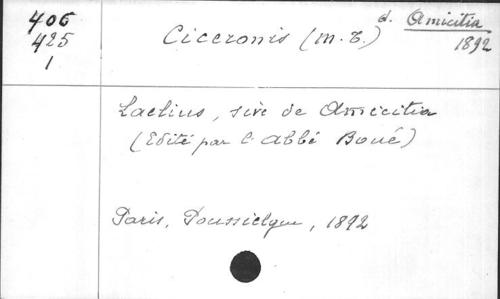 406
425
1
Ciceronis (M. T.) d. Amicitia
1892
Laelius, sive de Amicitia
(Edité par l'abbé Boué)
Paris, Poussielgue, 1892